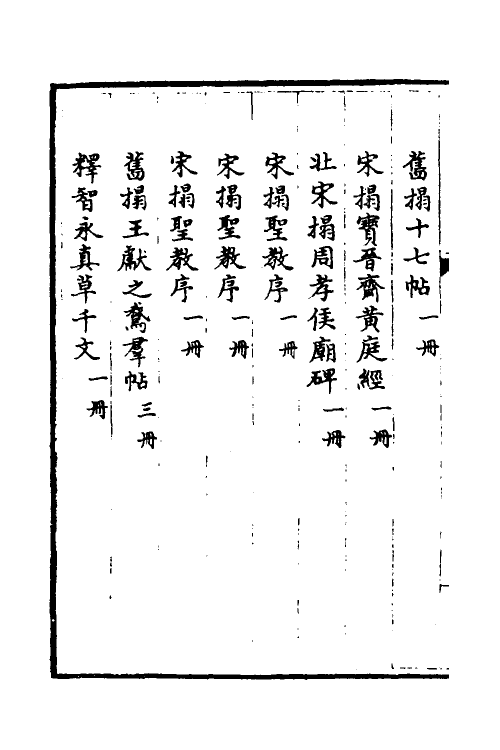 舊搨十七帖一冊
宋搨寶晉齋黃庭經一冊
北宋搨周孝侯廟碑一冊
宋搨聖教序一冊
宋搨聖教序一冊
宋搨聖教序一冊
舊搨王獻之鵞羣帖三冊
釋智永真草千文一冊